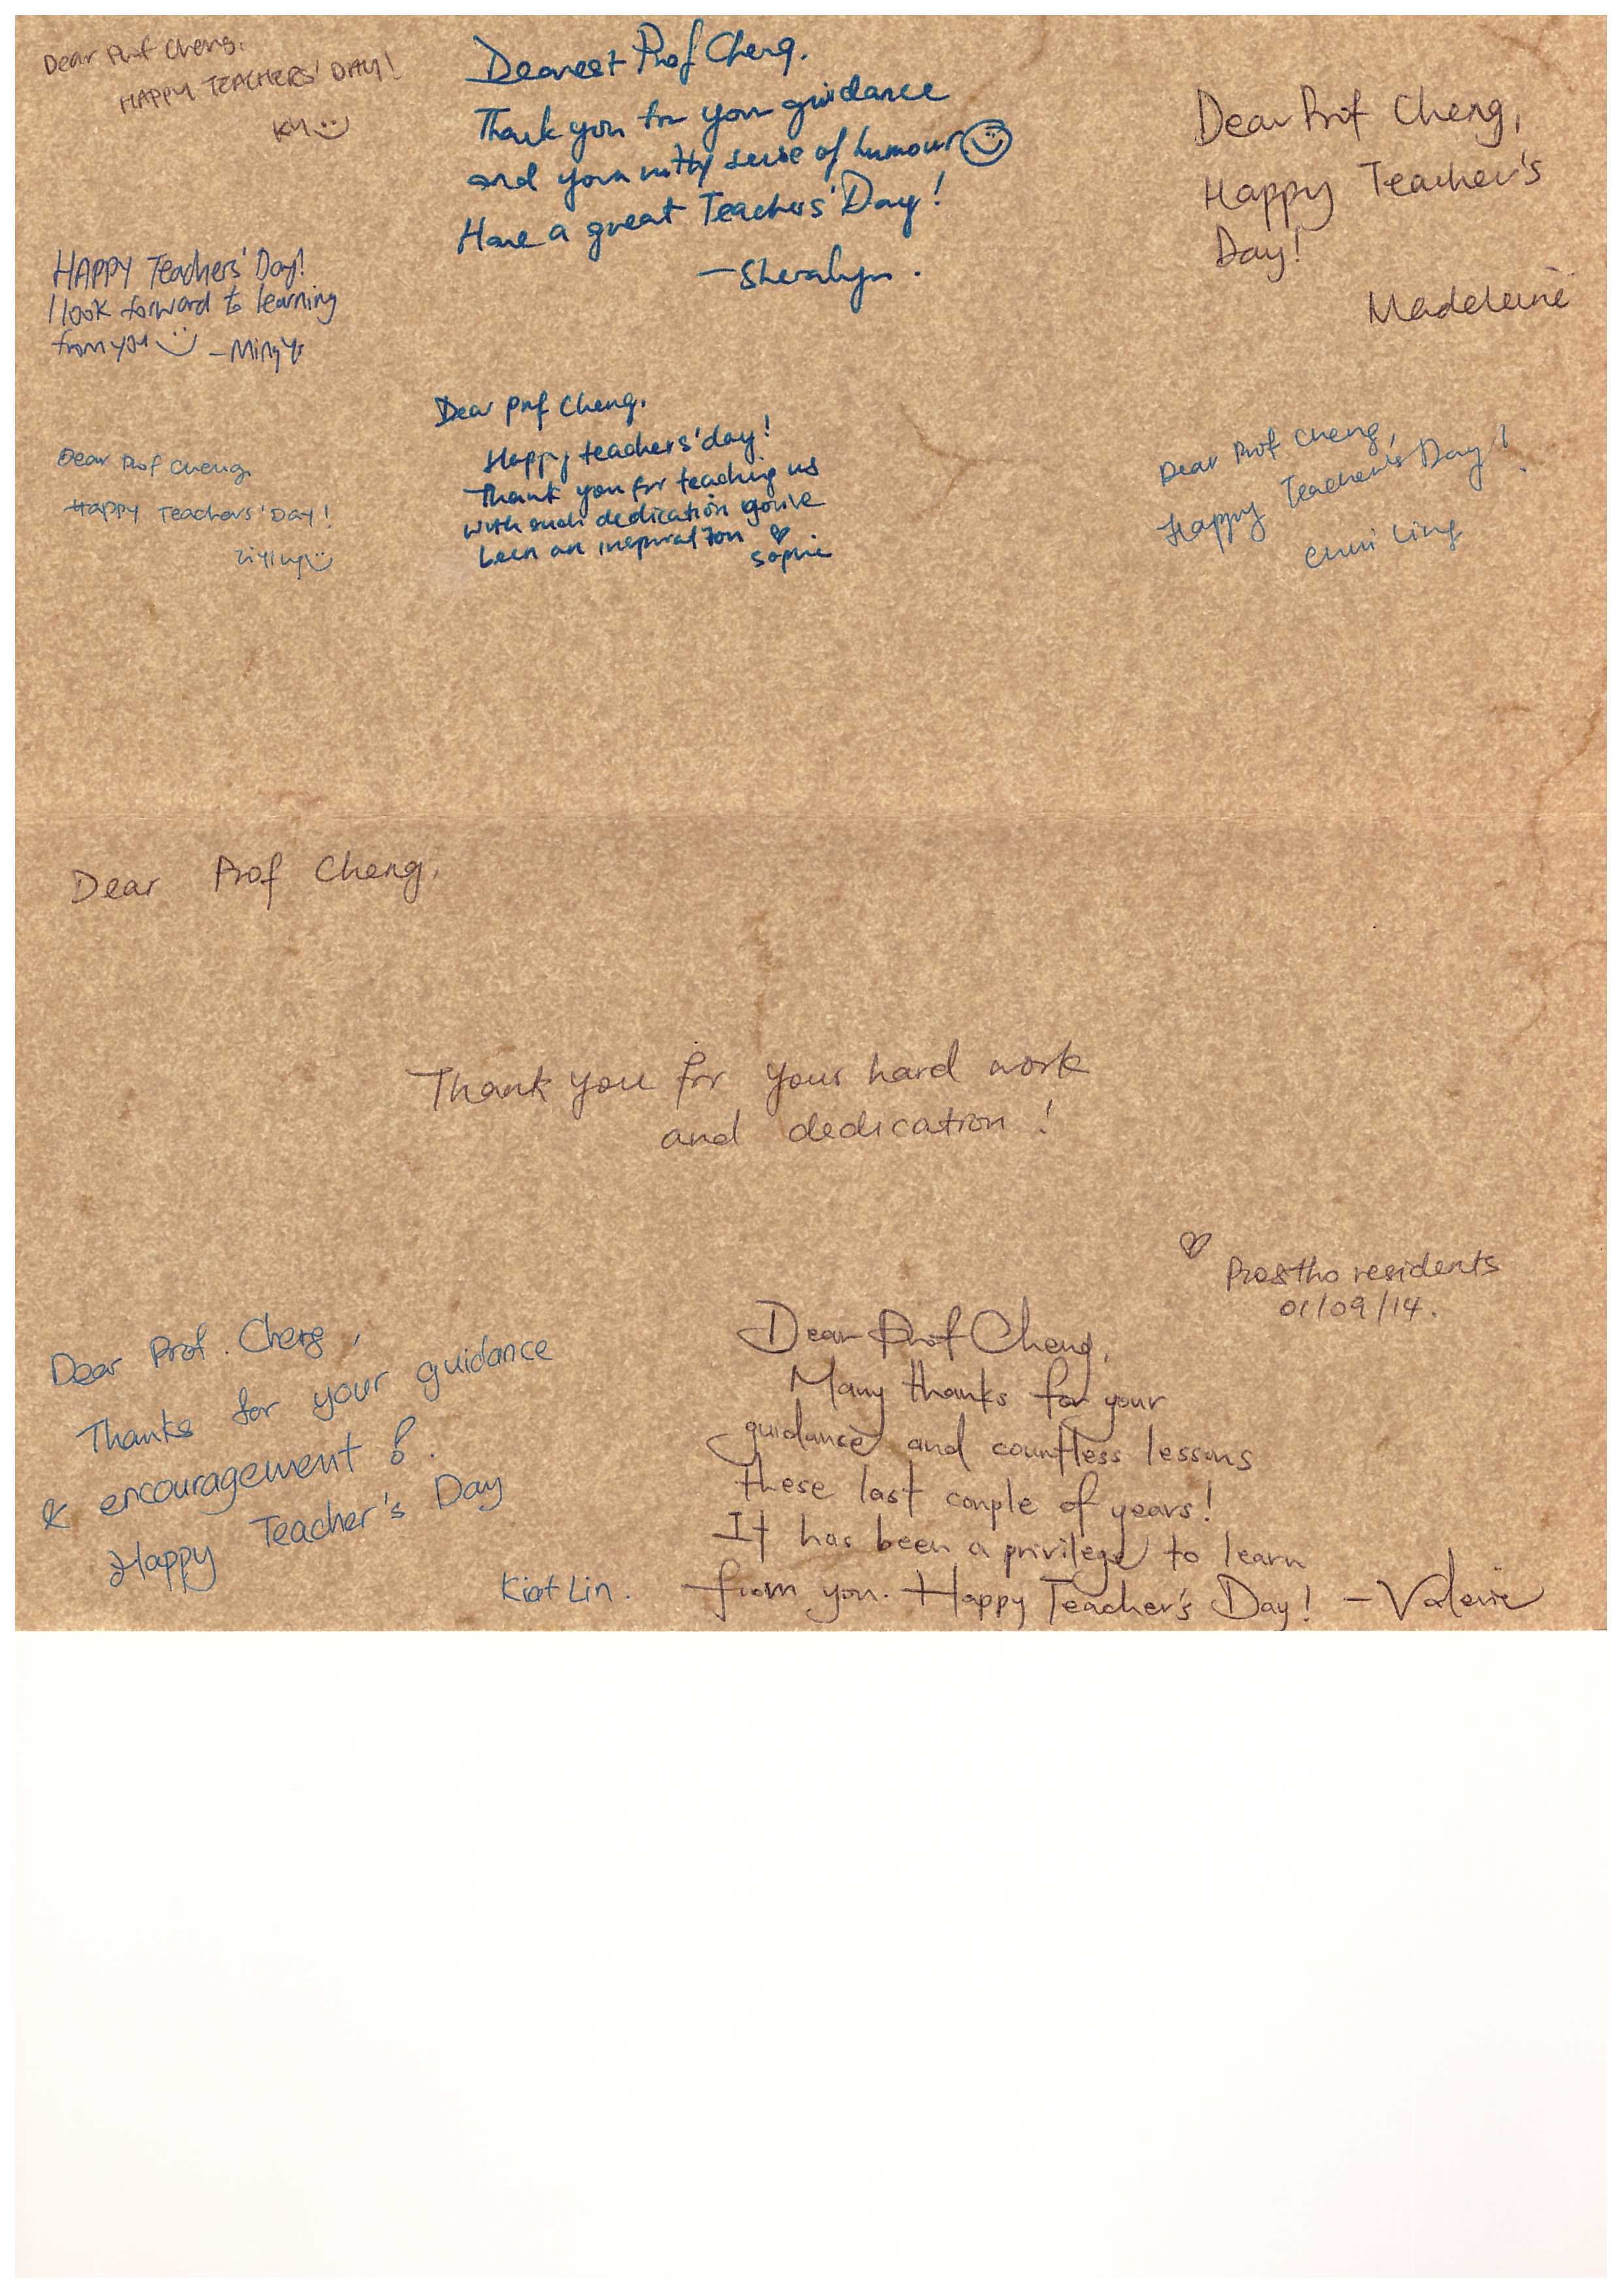 Dear Prof Cheng,
HAPPY TEACHERS' DAY!
KM
Dearest Prof Cheng,
Thank you for your guidance
and your witty sense of humour
Have a great Teachers' Day!
- Sheralyn.
Dear Prof Cheng,
Happy Teacher's
Day!
Madeleine
HAPPY Teachers' Day!
I look forward to learning
from you - Ming Yi
Dear Prof Cheng,
Happy teachers' day!
Thank you for teaching us
with such dedication you've
been an inspiration ♥
Sophie
Dear Prof Cheng,
Happy Teachers' Day!
Dear Prof Cheng,
Happy Teacher's Day!
Chui Ling
Dear Prof Cheng,
Thank you for your hard work
and dedication!
♥ Prostho residents
01/09/14.
Dear Prof. Cheng,
Thanks for your guidance
& encouragement!.
Happy Teacher's Day
Kiat Lin.
Dear Prof Cheng,
Many thanks for your
guidance and countless lessons
these last couple of years!
It has been a privilege to learn
from you. Happy Teacher's Day! - Valerie